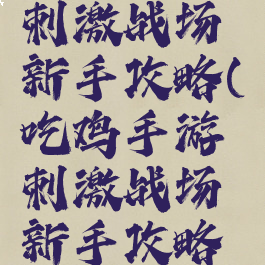 刺激战场
新手攻略(
吃鸡手游
刺激战场
新手攻略